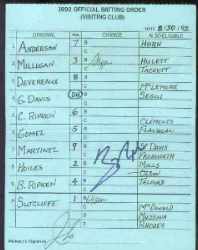 2002 OFFICIAL BATTING ORDER
(VISITING CLUB)
DATE 8-30-92
ORIGINAL CHANGE ALSO ELIGIBLE
1 ANDERSON 7 B HORN
2 MILLIGAN 3 B HULETT
C TACKETT
3 DEVEREAUX 8 B
4 G. DAVIS DH B McLEMORE
C SEGUI
5 C. RIPKEN 6 B
6 GOMEZ 5 B CLEMENTS
C FLANAGAN
7 MARTINEZ 9 B ST DAVIS
C FROHWIRTH
8 HOILES 2 B MILLS
C OLSON
9 B. RIPKEN 4 B TELFORD
SUTCLIFFE 1 B
McDONALD
MUSSINA
RHODES